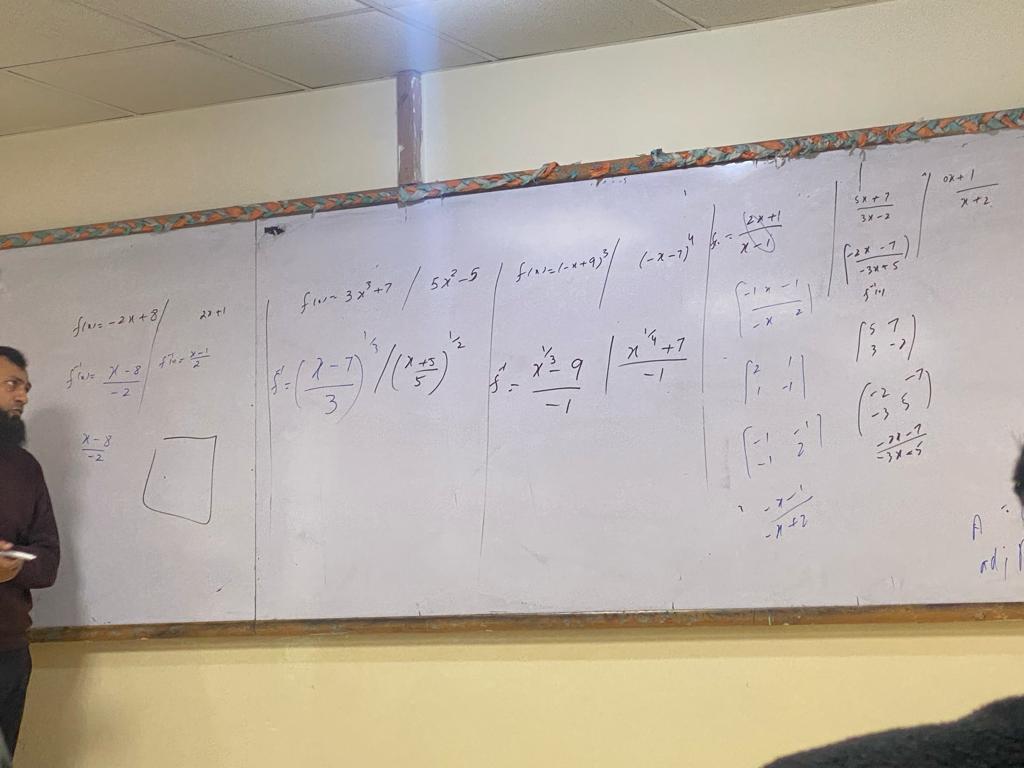 f(x) = -2x+8 / 2x+1
f⁻¹(x) = x-8/-2 f⁻¹(x) = x-1/2
x-8/-2
f(x) = 3x³+7 / 5x²-5
f⁻¹ = (x-7/3)^1/3 / (x+5/5)^1/2
f(x) = (-x+9)³ / (-x-7)⁴
f⁻¹ = x^1/3-9/-1 | x^1/4+7/-1
f. = 2x+1/x-1
-1x-1/-x 2
2 1
1 -1
-1 -1
-1 2
-x-1/-x+2
5x+7/3x-2
-2x-7/-3x+5
f⁻¹(x)
5 7
3 -2
-2 -7
-3 5
-2x-7/-3x+5
0x+1/x+2
A
adj